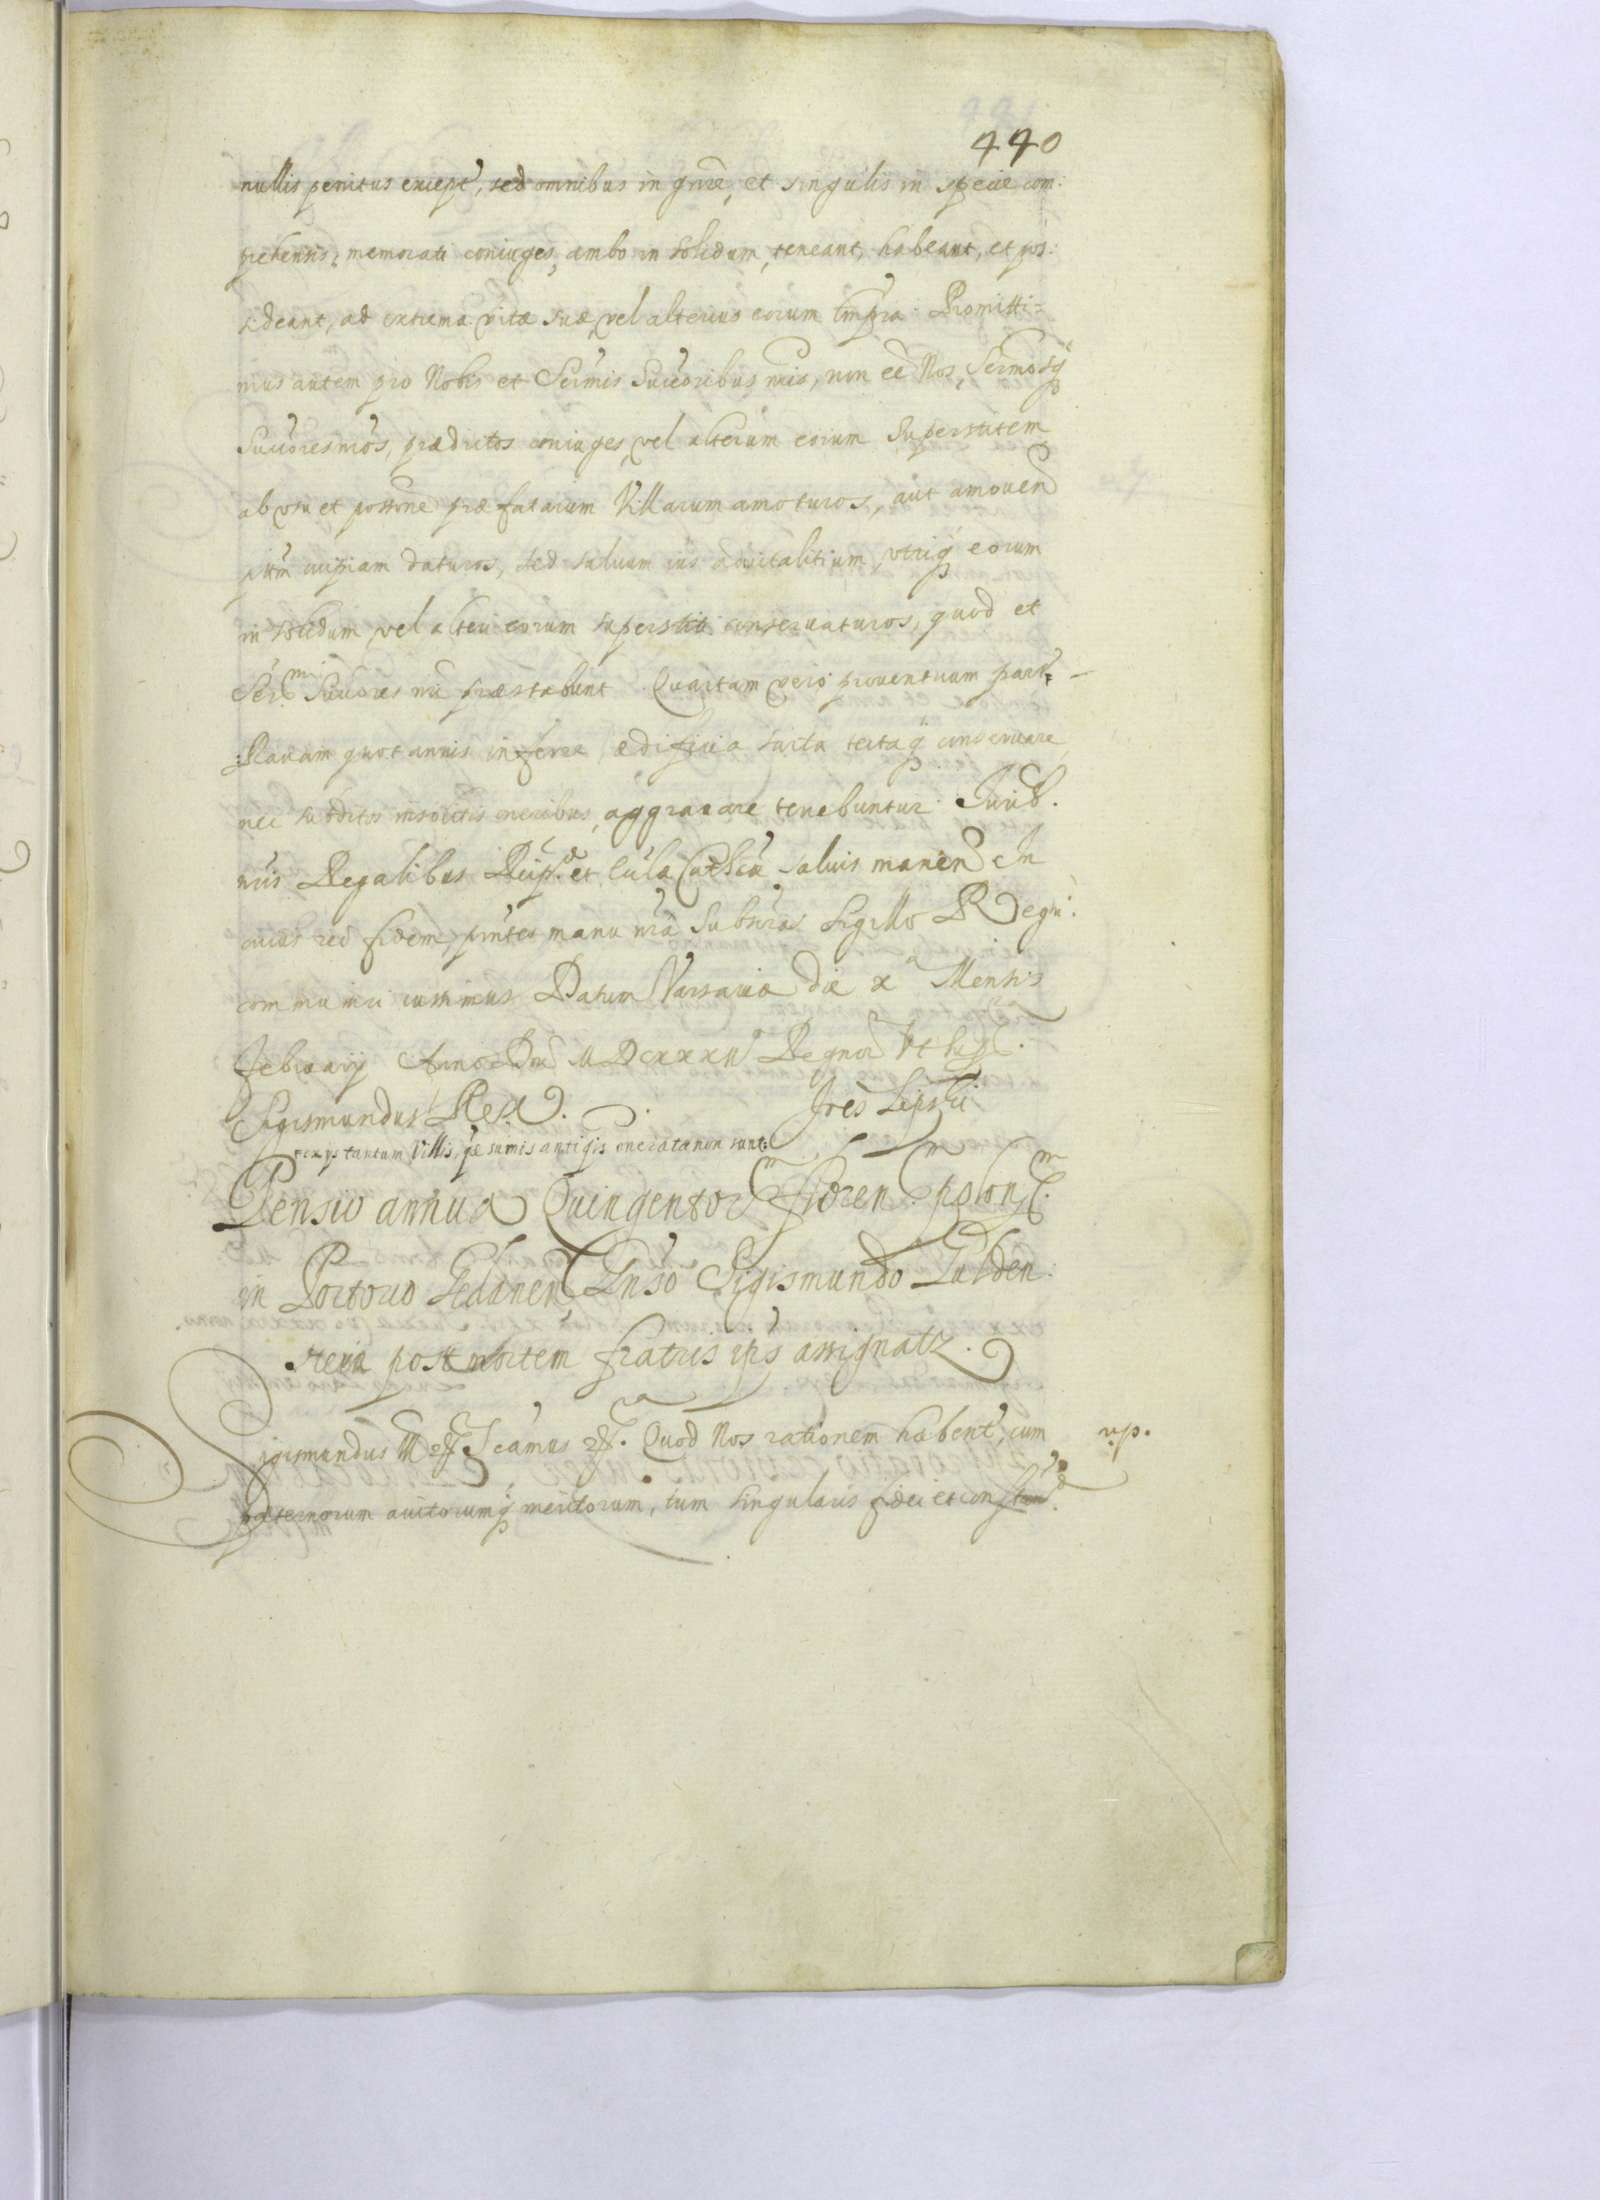 440
nullis penitus except, sed omnibus in gnre, et singulis in specie com:
prehensis, memorati coniuges, ambo in solidum, teneant, habeant, et pos:
sideant, ad extrema vitæ suæ, vel alterius eorum tmpra. Promitti-
mus autem pro Nobis et Sermis Succoribus nris, non eē Nos, Sermosq
Succores nros, prædictos coniuges, vel alterum eorum Superstitem
ab vsu et possone præfatarum Villarum amoturos, aut amouen
ptm cuipiam daturos, sed saluum ius aduitalitium, vtriq eorum
in solidum, vel alteri eorum superstiti conseruaturos, quod et
Sermi Succores nri præstabunt. Quartam vero prouentuum part.
Rauam quotannis inferre, ædificia sarta tectaq conseruare
nec subditos insolitis oneribus, aggrauare tenebuntur. Iurib.
nris Regalibus Reip. et Ccclæ Cathcæ saluis manen. In
cuius rei fidem, pñtes manu nrã Subscras Sigillo Regni.
communiri iussimus. Datum Varsauiæ die x Mensis
Februarij Anno Dni MDCXXXII Regnor Vt supr.
Sigismundus Rex. Ires Lipskii
ex ijs tantum Villis, qæ sumis antiqis oneratæ non sunt:
Pensio annua Quingentor Floren. polon.
in Portorio Gedanen, Gnso Sigismundo Gulden:
stern post mortem fratris ips assignatr.
Sigismundus III etc. Scamus etc. Quod Nos rationem habent, cum r.p.
paternorum auitorumq meritorum, tum singularis fidei et constan